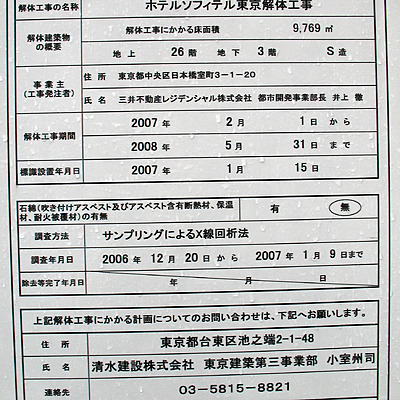 解体工事の名称 ホテルソフィテル東京解体工事
解体建築物の概要 解体工事にかかる床面積 9,769 ㎡
地上 26階 地下 3階 S造
事業主(工事発注者) 住所 東京都中央区日本橋室町3-1-20
氏名 三井不動産レジデンシャル株式会社 都市開発事業部長 井上 徹
解体工事期間 2007年 2月 1日から
2008年 5月 31日まで
標識設置年月日 2007年 1月 15日
石綿(吹き付けアスベスト及びアスベスト含有断熱材、保温
材、耐火被覆材)の有無 有 無
調査方法 サンプリングによるX線回析法
調査年月日 2006年 12月 20日から 2007年 1月 9日まで
除去等完了年月日 年 月 日
上記解体工事にかかる計画についてのお問い合わせは、下記へお願いします。
住所 東京都台東区池之端2-1-48
氏名 清水建設株式会社 東京建築第三事業部 小室州司
連絡先 03-5815-8821